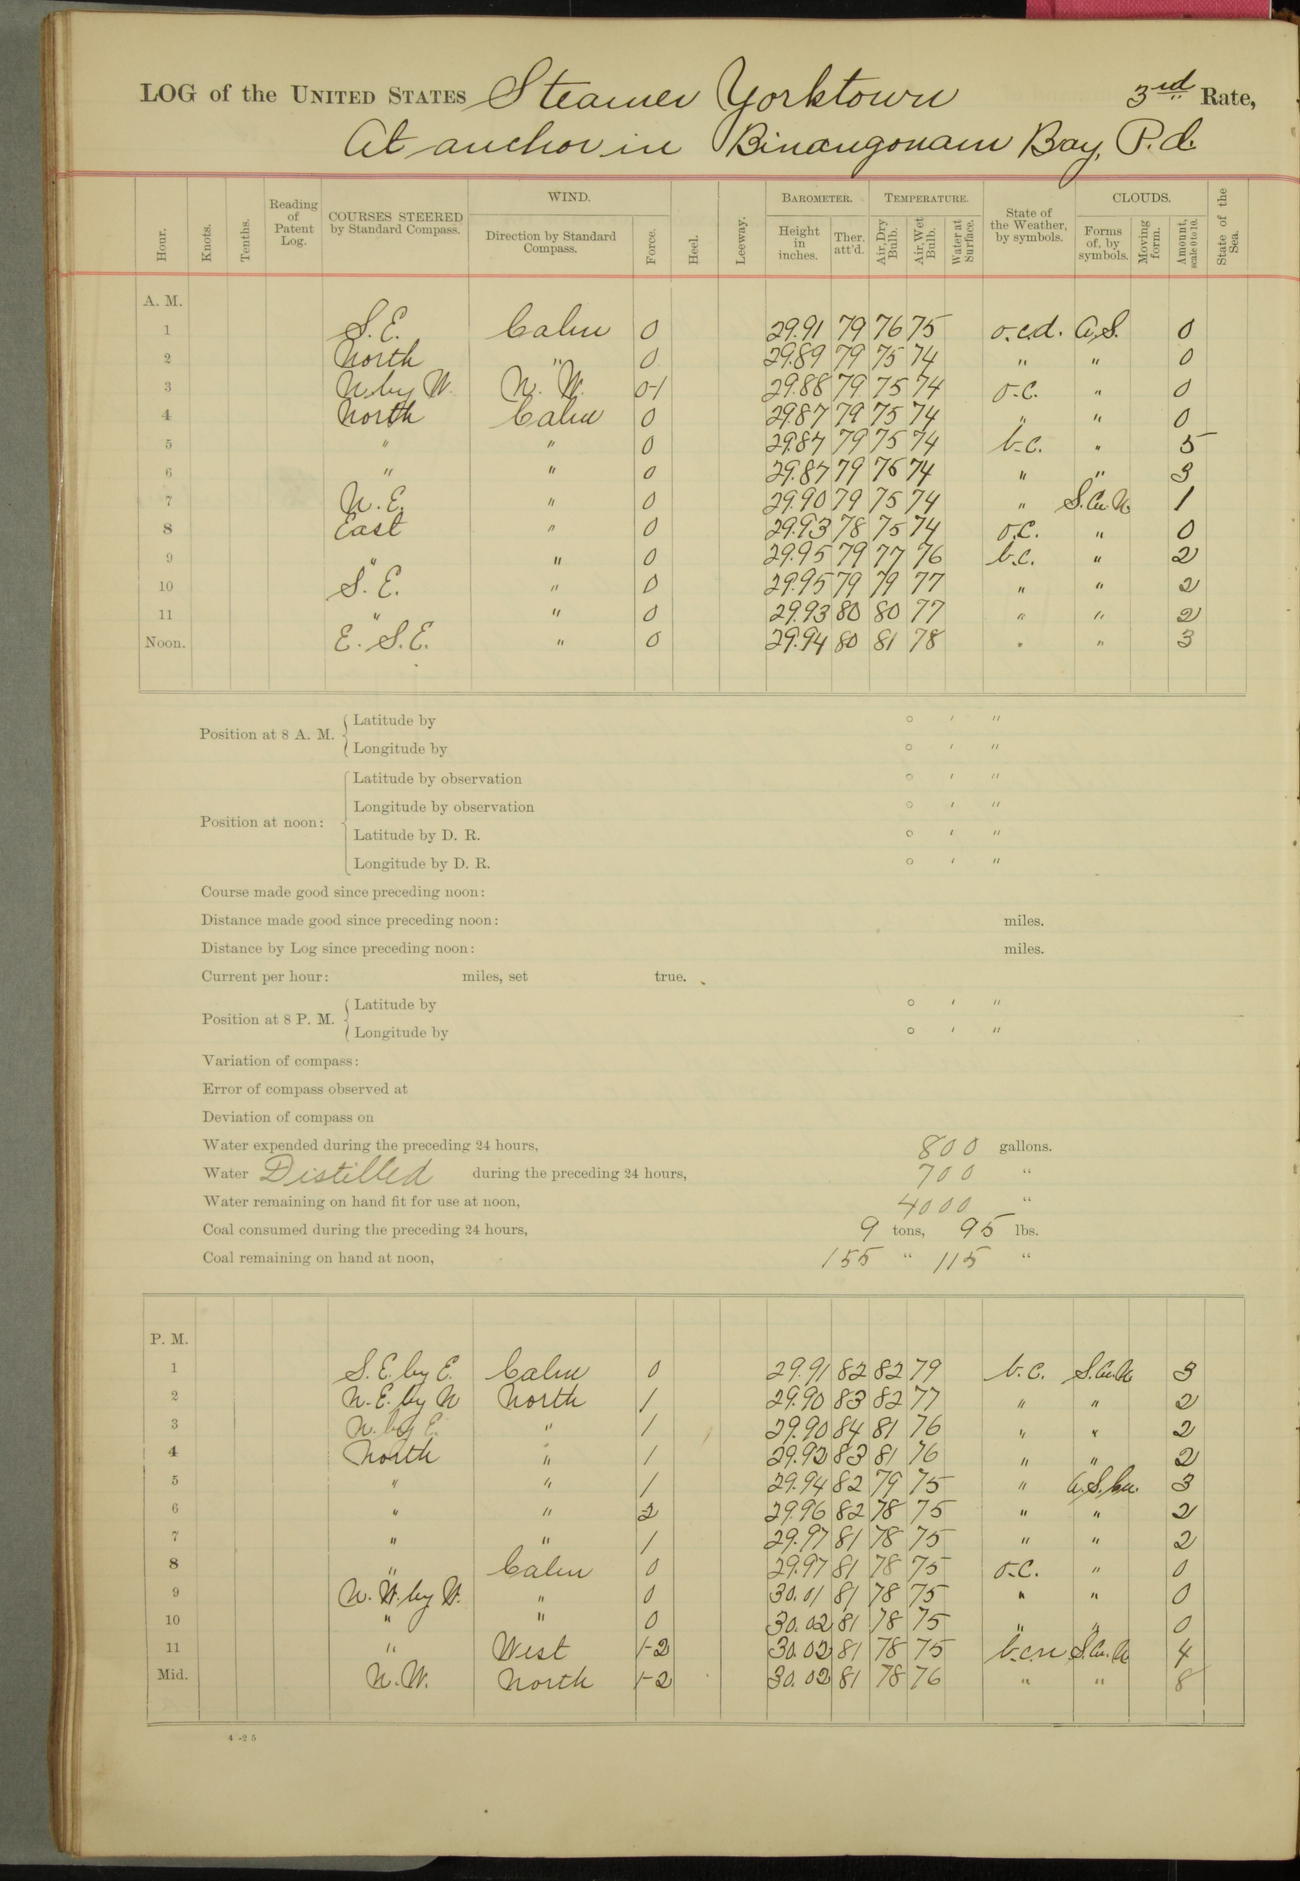 LOG of the UNITED STATES Steamer Yorktown 3rd Rate,
At anchor in Binangonam Bay, P.I.
Hour. Knots. Tenths. Reading of Patent Log. COURSES STEERED by Standard Compass. WIND. Direction by Standard Compass. Force. Heel. Leeway. BAROMETER. Height in inches. Ther. att'd. TEMPERATURE. Air, Dry Bulb. Air, Wet Bulb. Water at Surface. State of the Weather, by symbols. CLOUDS. Forms of, by symbols. Moving form. Amount, scale 0 to 10. State of the Sea.
A. M.
1 S. E. Calm 0 29.91 79 76 75 o.c.d. A.S. 0
2 North " 0 29.89 79 75 74 " " 0
3 N. by W. N. W. 0-1 29.88 79 75 74 o.c. " 0
4 North Calm 0 29.87 79 75 74 " " 0
5 " " 0 29.87 79 75 74 b.c. " 5
6 " " 0 29.87 79 75 74 " " 3
7 N. E. " 0 29.90 79 75 74 " S.Cu.N. 1
8 East " 0 29.93 78 75 74 o.c. " 0
9 " " 0 29.95 79 77 76 b.c. " 2
10 S. E. " 0 29.95 79 79 77 " " 2
11 " " 0 29.93 80 80 77 " " 2
Noon. E. S.E. " 0 29.94 80 81 78 " " 3
Position at 8 A. M. Latitude by ° ′ ″
Longitude by ° ′ ″
Position at noon: Latitude by observation ° ′ ″
Longitude by observation ° ′ ″
Latitude by D. R. ° ′ ″
Longitude by D. R. ° ′ ″
Course made good since preceding noon:
Distance made good since preceding noon: miles.
Distance by Log since preceding noon: miles.
Current per hour: miles, set true.
Position at 8 P. M. Latitude by ° ′ ″
Longitude by ° ′ ″
Variation of compass:
Error of compass observed at
Deviation of compass on
Water expended during the preceding 24 hours, 800 gallons.
Water Distilled during the preceding 24 hours, 700 "
Water remaining on hand fit for use at noon, 4000 "
Coal consumed during the preceding 24 hours, 9 tons, 95 lbs.
Coal remaining on hand at noon, 155 " 115 "
P. M.
1 S. E. by E. Calm 0 29.91 82 82 79 b.c. S.Cu.N. 3
2 N. E. by N North 1 29.90 83 82 77 " " 2
3 N. by E. " 1 29.90 84 81 76 " " 2
4 North " 1 29.92 83 81 76 " " 2
5 " " 1 29.94 82 79 75 " A.S.Cu. 3
6 " " 2 29.96 82 78 75 " " 2
7 " " 1 29.97 81 78 75 " " 2
8 " Calm 0 29.97 81 78 75 o.c. " 0
9 N. W. by W. " 0 30.01 81 78 75 " " 0
10 " " 0 30.02 81 78 75 " " 0
11 " West 1-2 30.02 81 78 75 b.c.n S.Cu.N 4
Mid. N. W. North 1-2 30.02 81 78 76 " " 8
4-25